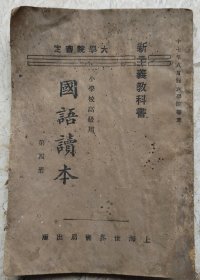 大學院審定
新主義教科書
小學校高級用
國語讀本
第四册
上海世界書局出版